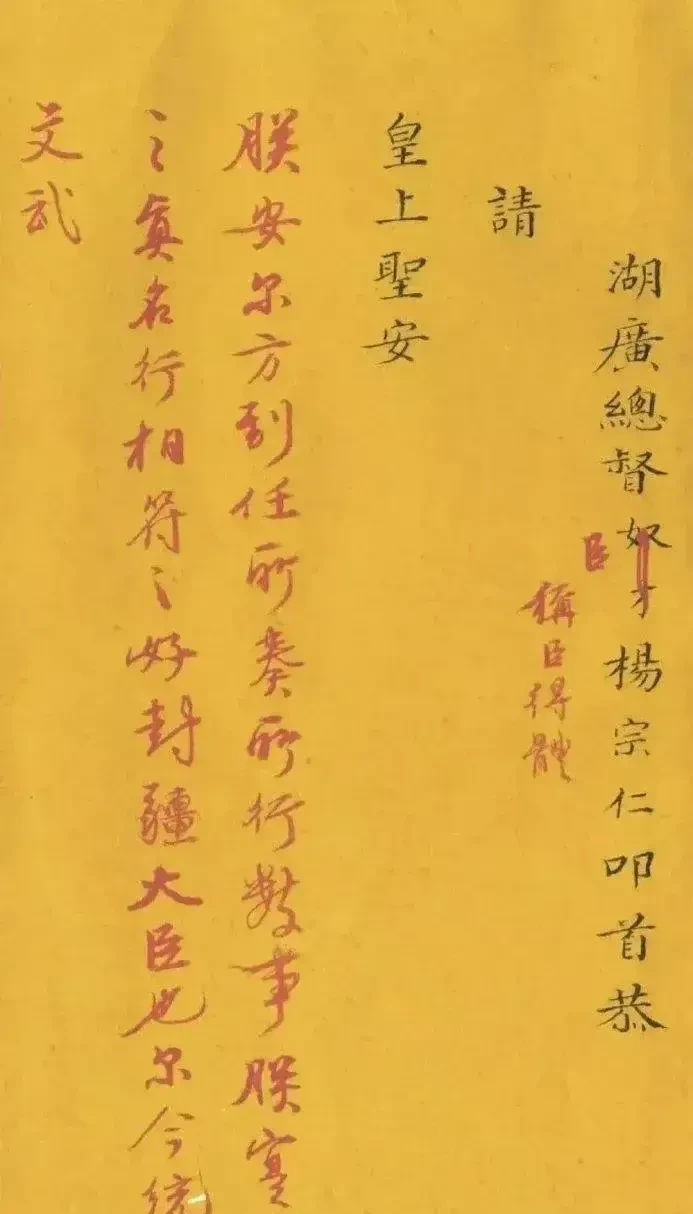 湖廣總督奴才楊宗仁叩首恭
臣
稱臣得體
請
皇上聖安
朕安尔方到任所奏所行數事朕實
〻真名行相符〻好封疆大臣也尔今統
文武